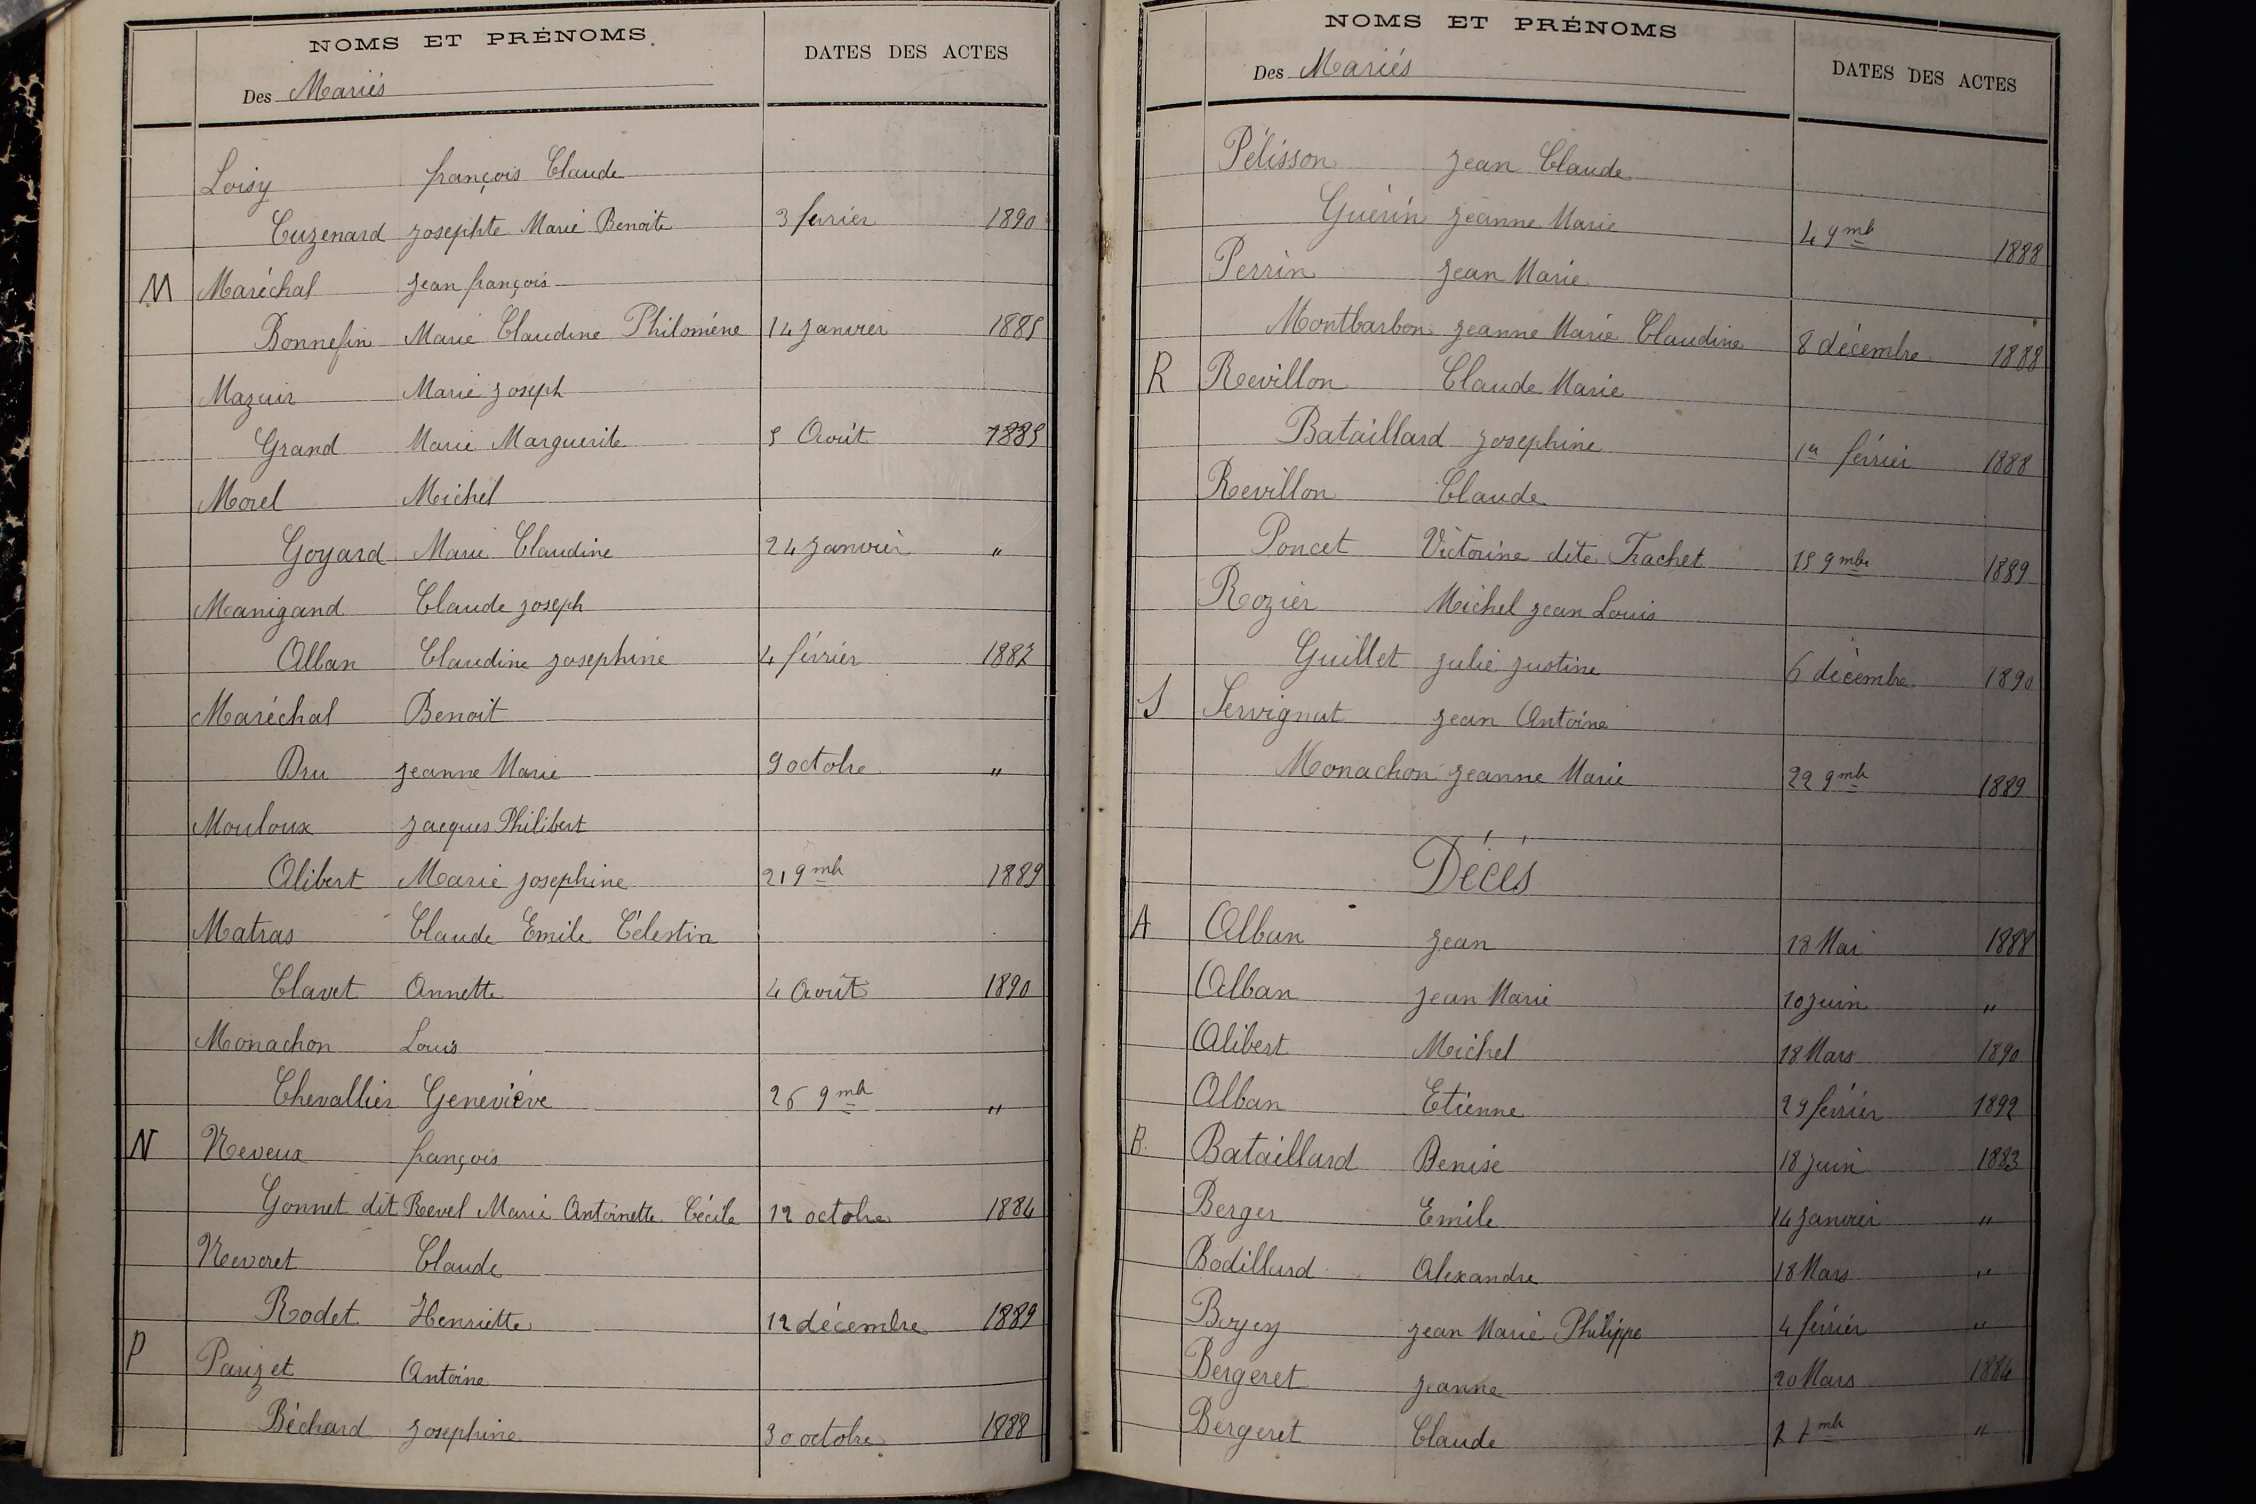 NOMS ET PRÉNOMS DATES DES ACTES
Des Mariés
Loisy françois Claude
Cuzenard Josephte Marie Benoite 3 fevrier 1890
M Maréchal Jean françois
Bonnefin Marie Claudine Philomène 14 Janvier 1885
Mazuir Marie Joseph
Grand Marie Marguerite 5 Août 1885
Morel Michel
Goyard Marie Claudine 24 Janvier "
Manigand Claude Joseph
Alban Claudine Josephine 4 février 1887
Maréchal Benoit
Dru Jeanne Marie 9 octobre "
Mouloux Jacques Philibert
Alibert Marie Josephine 21 9mb 1889
Matras Claude Emile Célestin
Clavet Annette 4 Août 1890
Monachon Louis
Chevallier Geneviève 26 9mb "
N Neveux françois
Gonnet dit Revel Marie Antoinette Cécile 12 octobre 1884
Neveret Claude
Rodet Henriette 12 décembre 1889
P Parizet Antoine
Béchard Josephine 30 octobre 1888
NOMS ET PRÉNOMS DATES DES ACTES
Des Mariés
Pélisson Jean Claude
Guérin Jeanne Marie 4 9mb 1888
Perrin Jean Marie
Montbarbon Jeanne Marie Claudine 8 décembre 1888
R Revillon Claude Marie
Bataillard Josephine 1er février 1888
Revillon Claude
Poncet Victorine dite Trachet 15 9mbre 1889
Rozier Michel Jean Louis
Guillet Julie Justine 6 décembre 1890
S Servignat Jean Antoine
Monachon Jeanne Marie 22 9mb 1889
Décés
A Alban Jean 18 Mai 1888
Alban Jean Marie 10 Juin "
Alibert Michel 18 Mars 1890
Alban Etienne 29 février 1892
B. Bataillard Denise 18 Juin 1883
Berger Emile 14 Janvier "
Bodillard Alexandre 18 Mars "
Boyey Jean Marie Philippe 4 février "
Bergeret Jeanne 20 Mars 1884
Bergeret Claude 7 7mb "